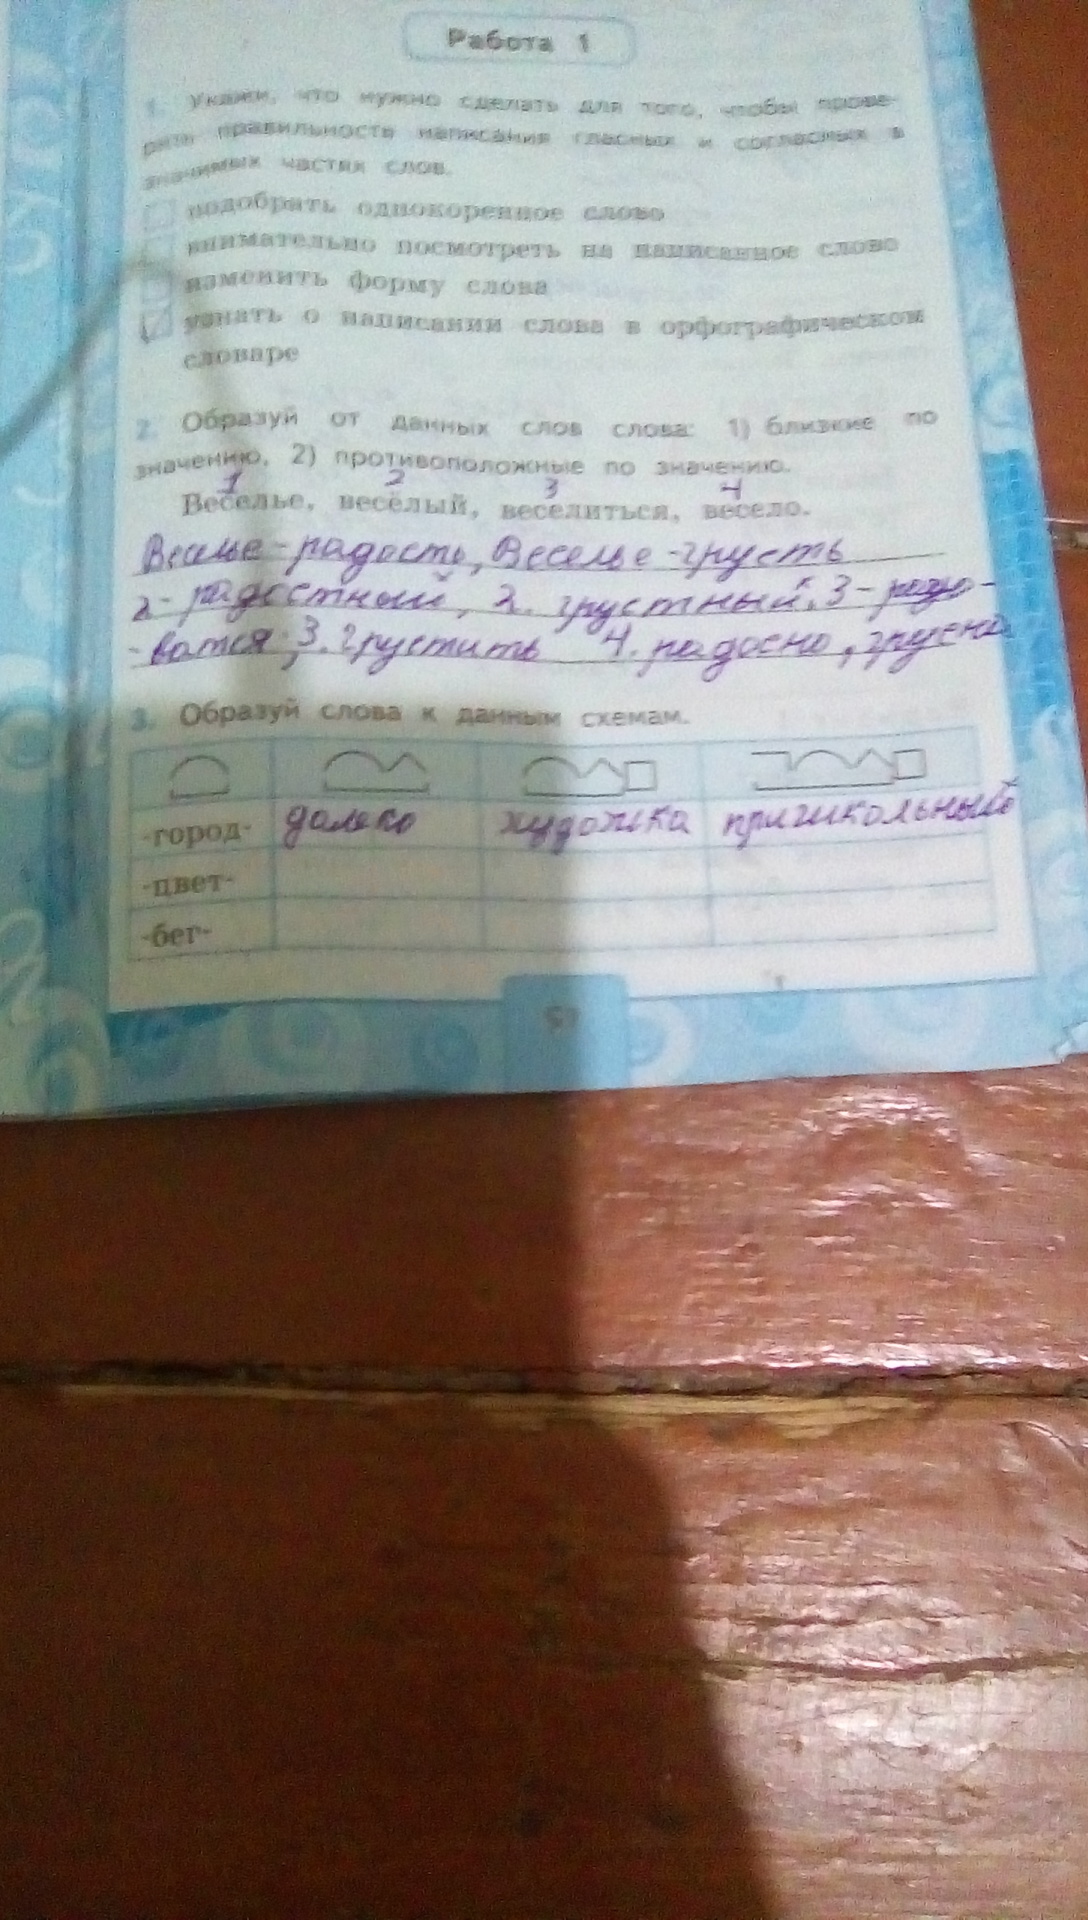 Работа 1
1. Укажи, что нужно сделать для того, чтобы прове-
рить правильность написания гласных и согласных в
значимых частях слов.
подобрать однокоренное слово
внимательно посмотреть на написанное слово
изменить форму слова
узнать о написании слова в орфографическом
словаре
2. Образуй от данных слов слова: 1) близкие по
значению, 2) противоположные по значению.
1 2 3 4
Веселье, весёлый, веселиться, весело.
Веселье - радость, Веселье - грусть
2 - радостный, 2. грустный, 3 - радо-
- ватся; 3. грустить 4. радосно, грусно
3. Образуй слова к данным схемам.
-город- далеко художка пришкольный
-цвет-
-бег-